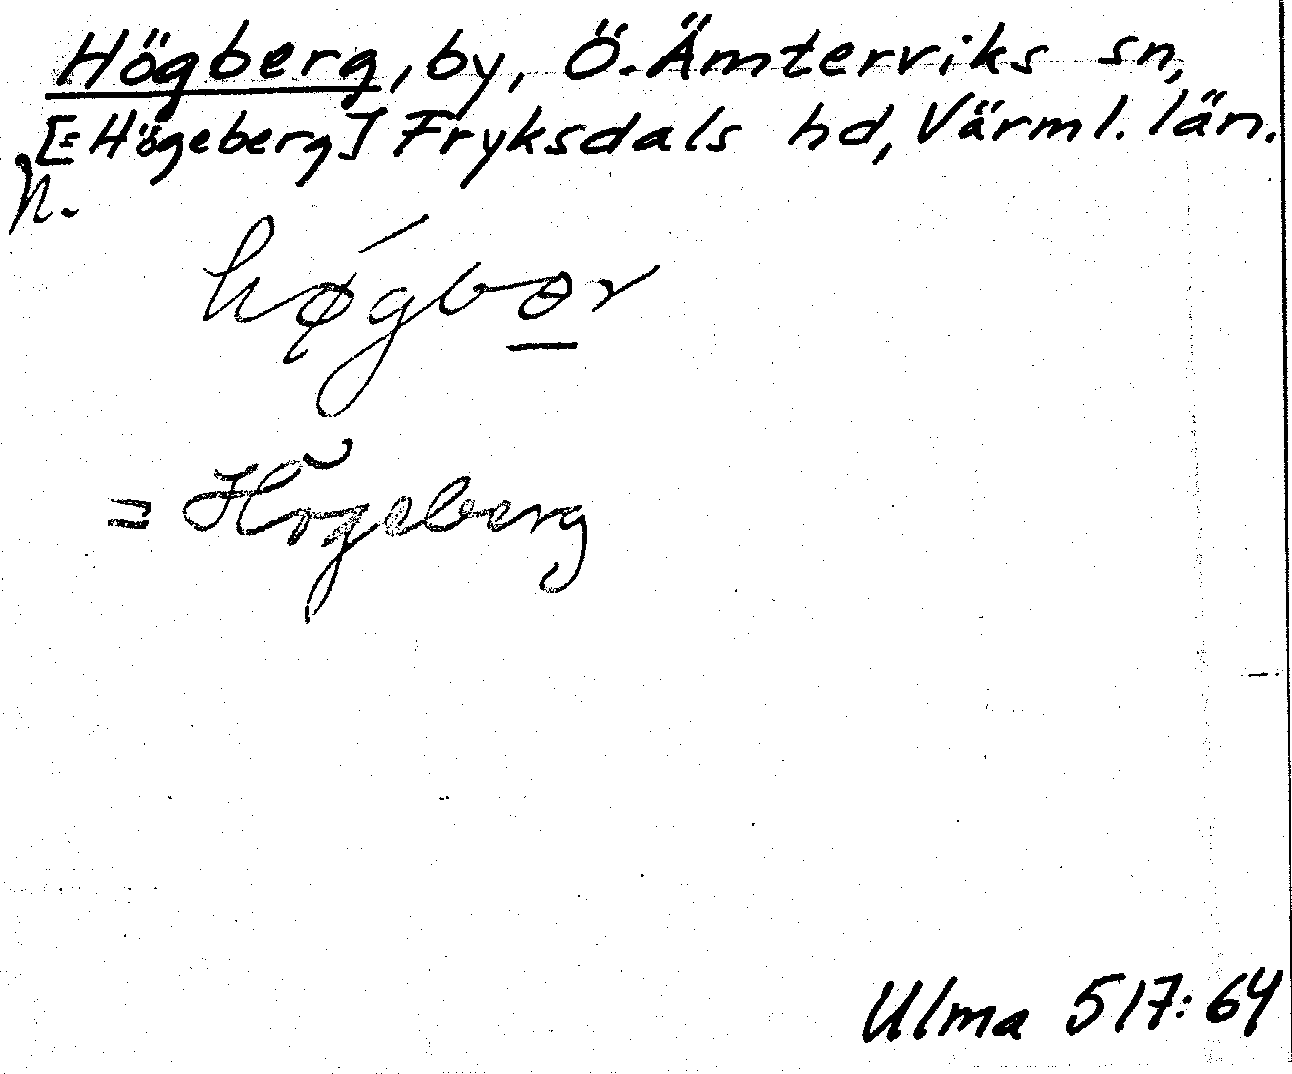 Högberg, by, Ö. Ämterviks sn,
[= Högeberg] Fryksdals hd, Värml. län.
n.
hǿgbər
= Högeberg
Ulma 517:64